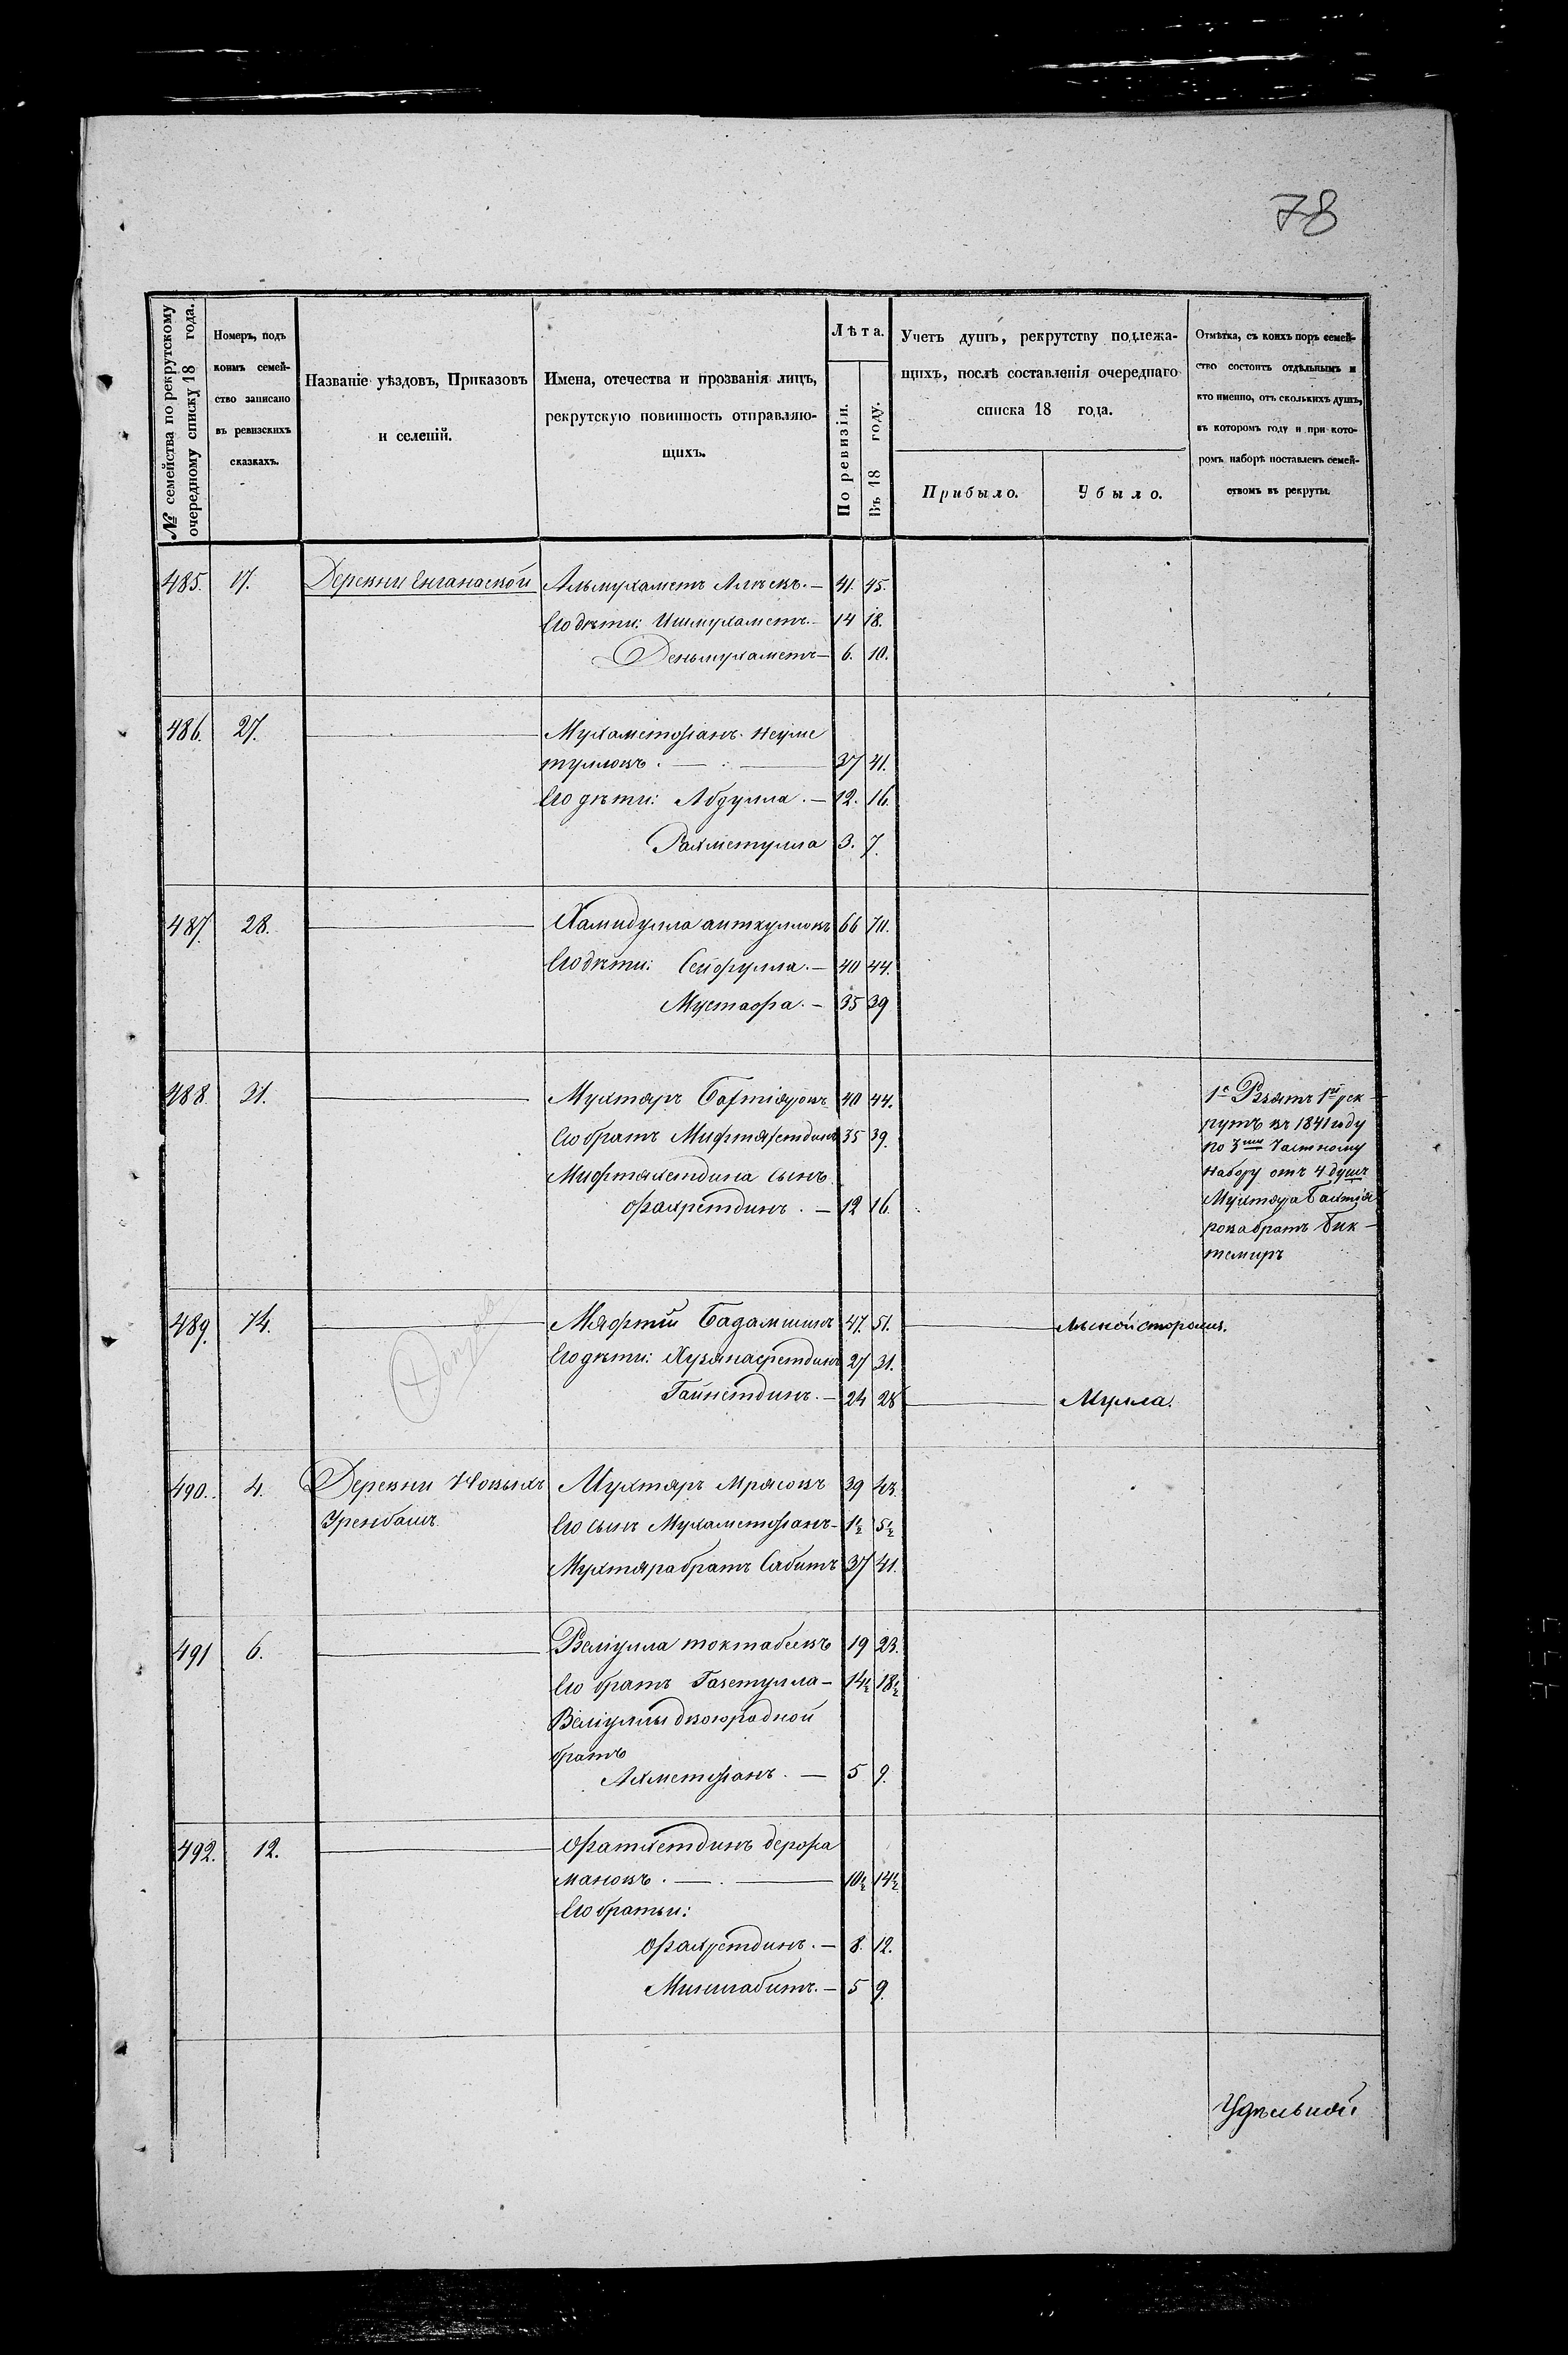 78
№ семейства по рекрутскому
очередному списку 18 года.
Номеръ, подъ
коимъ семей-
ство записано
въ ревизскихъ
сказкахъ.
Названіе уѣздовъ, Приказовъ
и селеній.
Имена, отечества и прозванія лицъ,
рекрутскую повинность отправляю-
щихъ.
Лѣта.
По ревизіи.
Въ 18 году.
Учетъ душъ, рекрутству подлежа-
щихъ, послѣ составленія очереднаго
списка 18 года.
Прибыло.
Убыло.
Отмѣтка, съ коихъ поръ семей-
ство состоитъ отдѣльнымъ и
кто именно, отъ сколькихъ душъ,
въ которомъ году и при кото-
ромъ наборѣ поставленъ семей-
ствомъ въ рекруты.
485. 17. Деревни Енганаевой Альмухаметъ Алѣевъ. — 41. 45.
Его дѣти: Ишмухаметъ. — 14 18.
Деньмухаметъ — 6. 10.
486. 27. Мухаметзянъ
тулловъ. — 37 41.
Его дѣти: Абдулла. — 12. 16.
Рахметулла 3. 7.
487. 28. Хамидулла аиткуловъ 66 70.
Его дѣти: Сейфулла. — 40 44.
Мустафа. — 35 39
488 31. Мухтяръ Бахтіяровъ 40 44.
Его братъ Мифтахетдинъ 35 39.
Мифтяхетдина сынъ
Фахретдинъ. — 12 16.
1й Взятъ 1й рек-
рутъ въ 1841 году
по 3му частному
набору отъ 4 душъ
Мухтяра Бахтія
рова братъ Бик-
темиръ
489. 74. Мяфтій Бадамшинъ 47. 51.
Его дѣти: Хузянасретдинъ 27 31.
Гайнетдинъ. — 24 28 Мулла.
490. 4. Деревни Новыхъ Мухтяръ Мрясовъ 39 43.
Уренбашъ Его сынъ Мухаметзянъ — 1½ 5½
Мухтяра братъ Сабитъ 37 41.
491 6. Веліулла токтабаевъ 19 23.
Его братъ Газетулла — 14½ 18½
Веліуллы двоюродной
братъ
Ахметзянъ. — 5 9.
492. 12. Фатхетдинъ
мановъ. — 10½ 14½
Его братьи:
Фахретдинъ. — 8. 12.
Мингабитъ. — 5 9.
Удѣльной